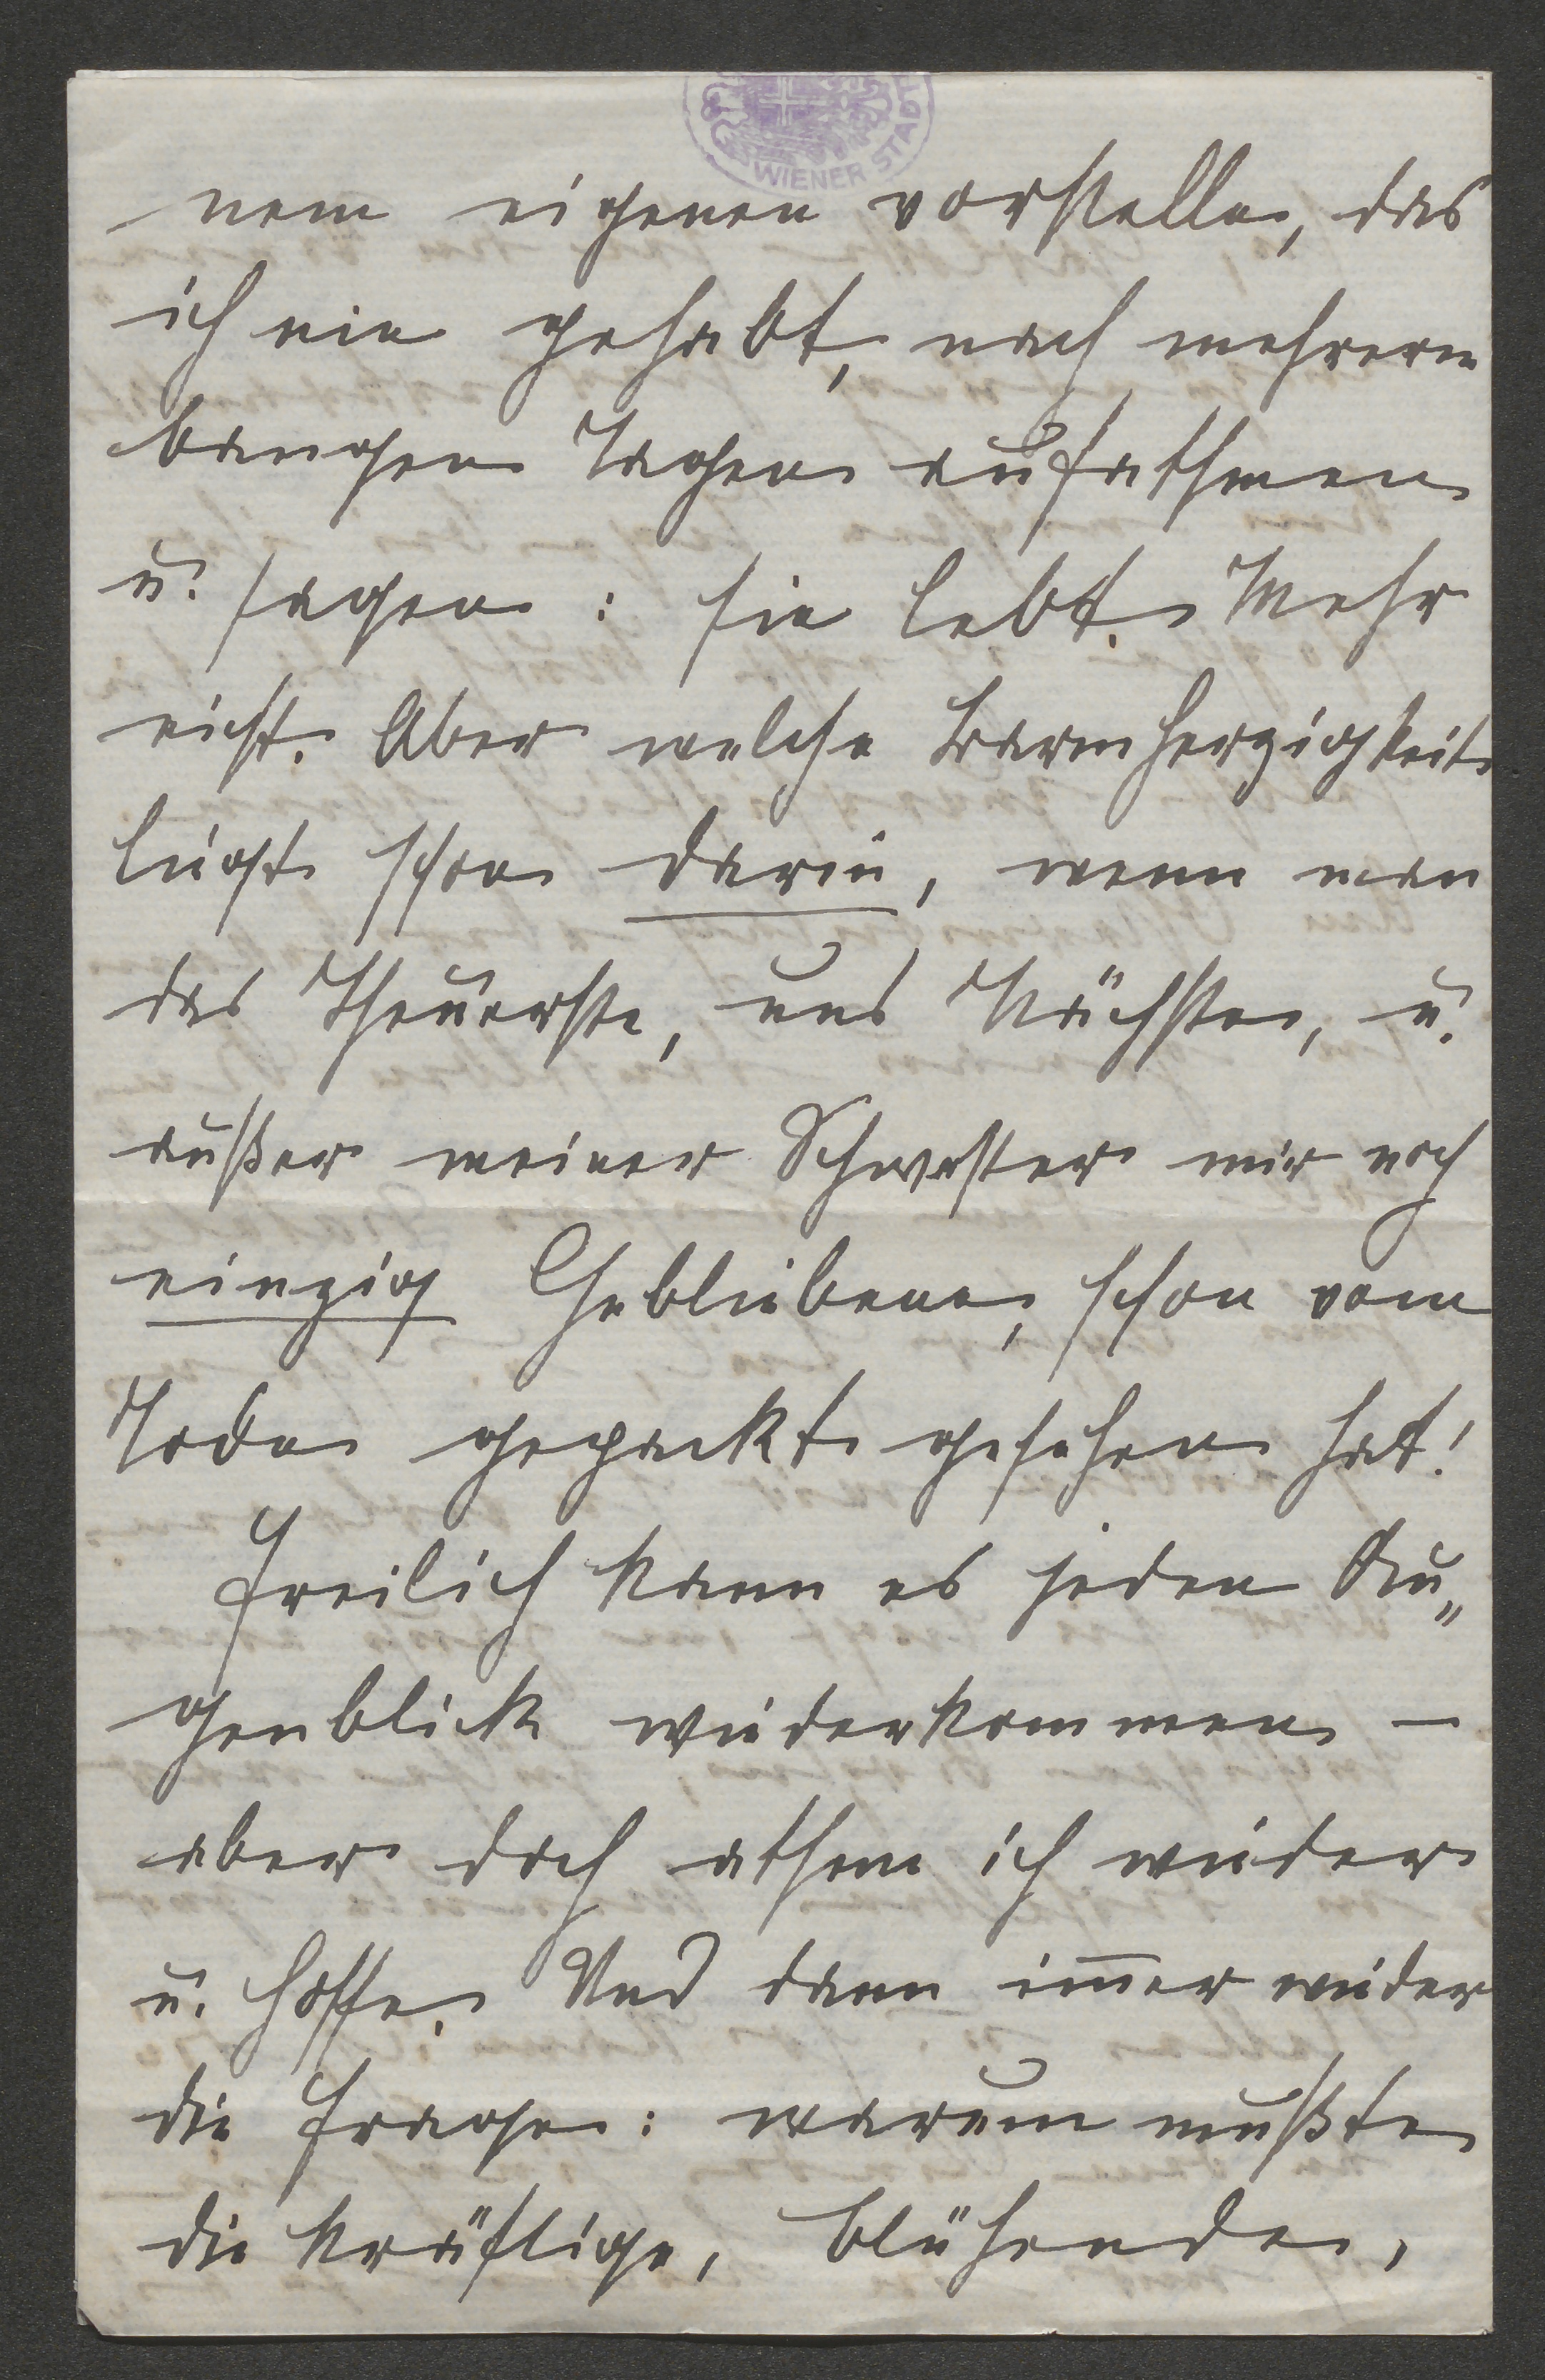 WIENER STADT
nem eigenen vorstelle, das
ich nie gehabt, nach mehreren
bangen Tagen aufathmen
u. sagen: sie lebt. Mehr
nicht. Aber welche Barmherzigkeit
liegt schon darin, wenn man
das Theuerste, uns Nächste, u.
außer meiner Schwester mir noch
einzig Gebliebene, schon vom
Tode gepackt gesehen hat!
Freilich kann es jeden Au„
genblick wiederkommen –
aber doch athme ich wieder
u. hoffe. Und dann im̅er wieder
die Frage: warum mußte
die kräftige, blühende,